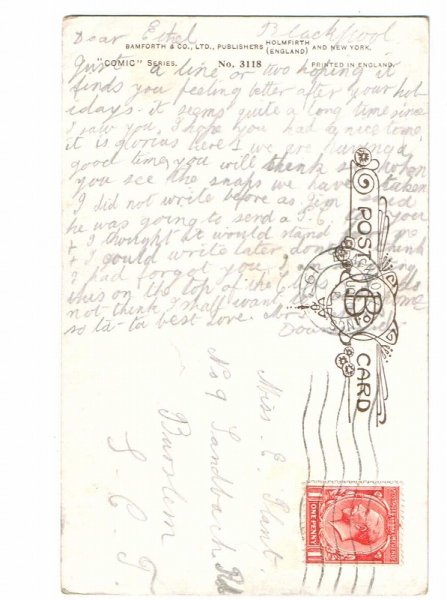 Dear Ethel Blackpool
BAMFORTH & CO., LTD., PUBLISHERS HOLMFIRTH (ENGLAND) AND NEW YORK.
"COMIC" SERIES. No. 3118 PRINTED IN ENGLAND.
Just a line or two hoping it
finds you feeling better after your hol-
idays. it seems quite a long time since
I saw you, I hope you had a nice time
it is glorious here & we are having a
good time, you will think so when
you see the snaps we have taken
I did not write before as Jim said
he was going to send a P.C. to you
& I thought it would stand
& I could write later, don't think
I had forgot you, I am writing
this on the top of the
not think I shall want to come home
so ta-ta best love
POST CARD
B & Co
Miss E. Plant.
No 9 Sandbach Rd
Burslem
S. O. T.
POSTAGE REVENUE
1 ONE PENNY 1